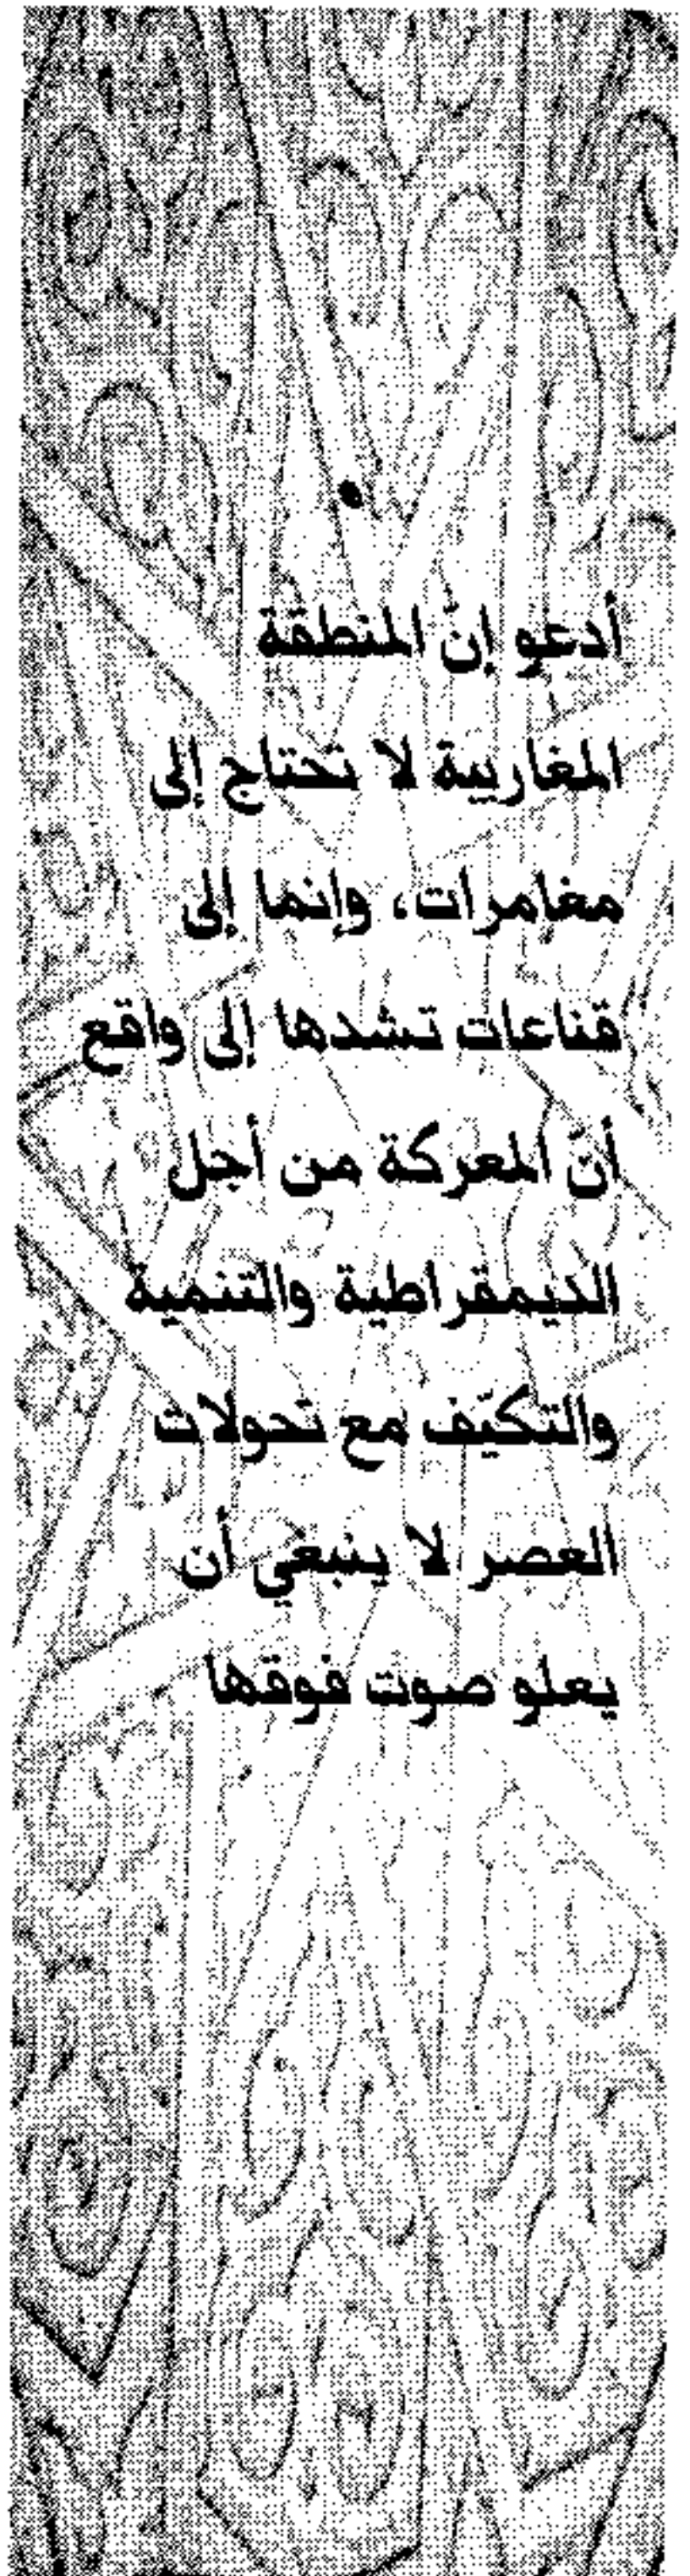 أدعو إنّ المنطقة
المغاربية لا تحتاج إلى
مغامرات، وإنما إلى
قناعات تشدها إلى واقع
أنّ المعركة من أجل
الديمقراطية والتنمية
والتكيّف مع تحولات
العصر لا ينبغي أن
يعلو صوت فوقها